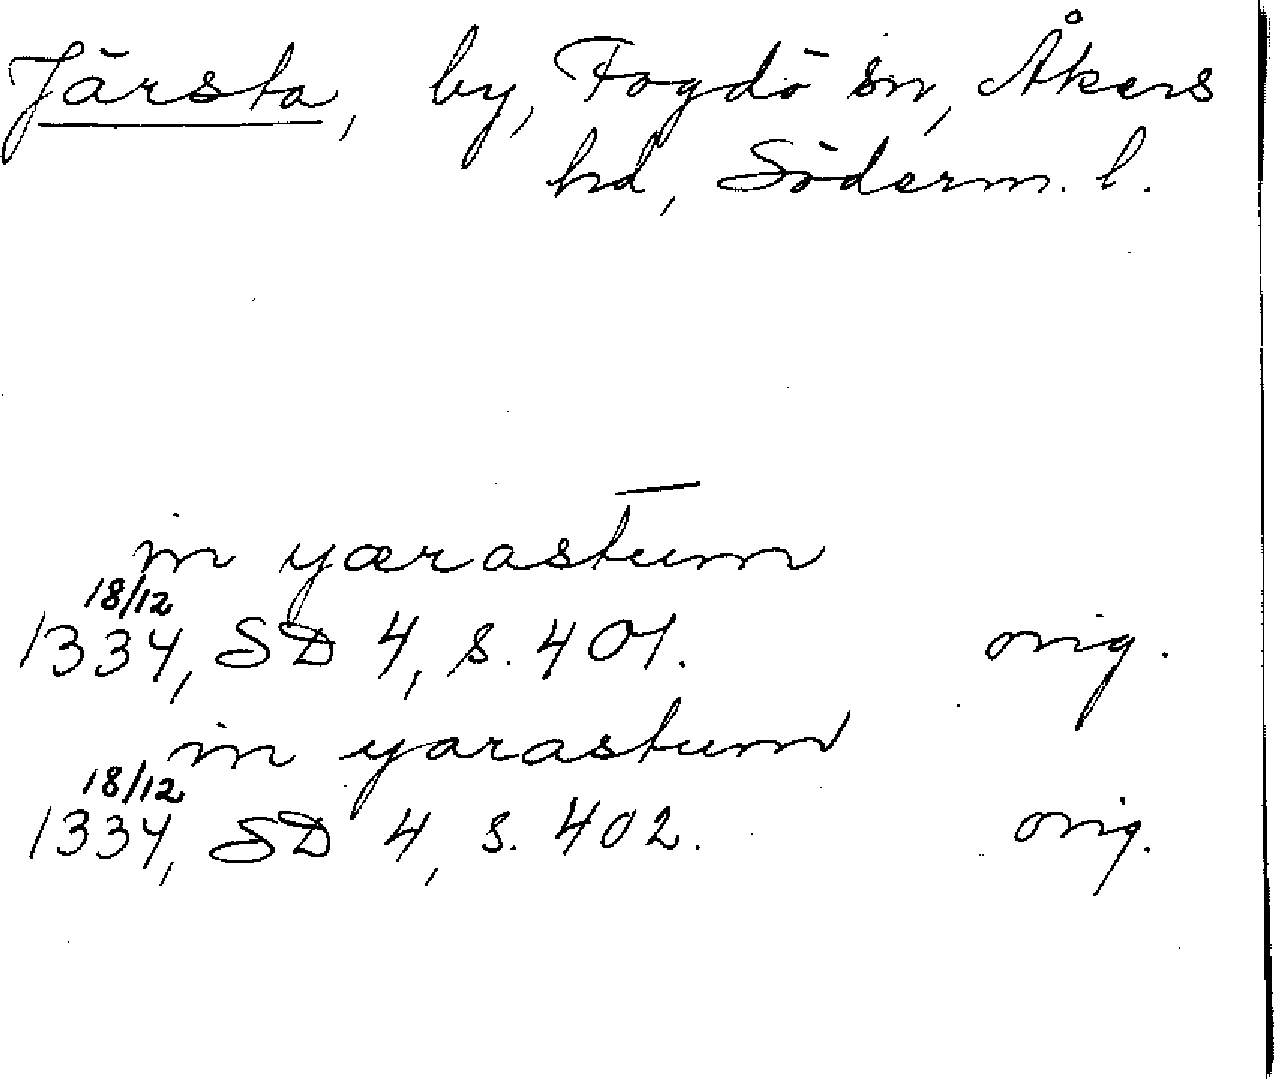 Järsta, by, Fogdö sn, Åkers
hd, Söderm. l.
in yærastum
18/12
1334, SD 4, s. 401. orig.
in yarastum
18/12
1334, SD 4, s. 402. orig.